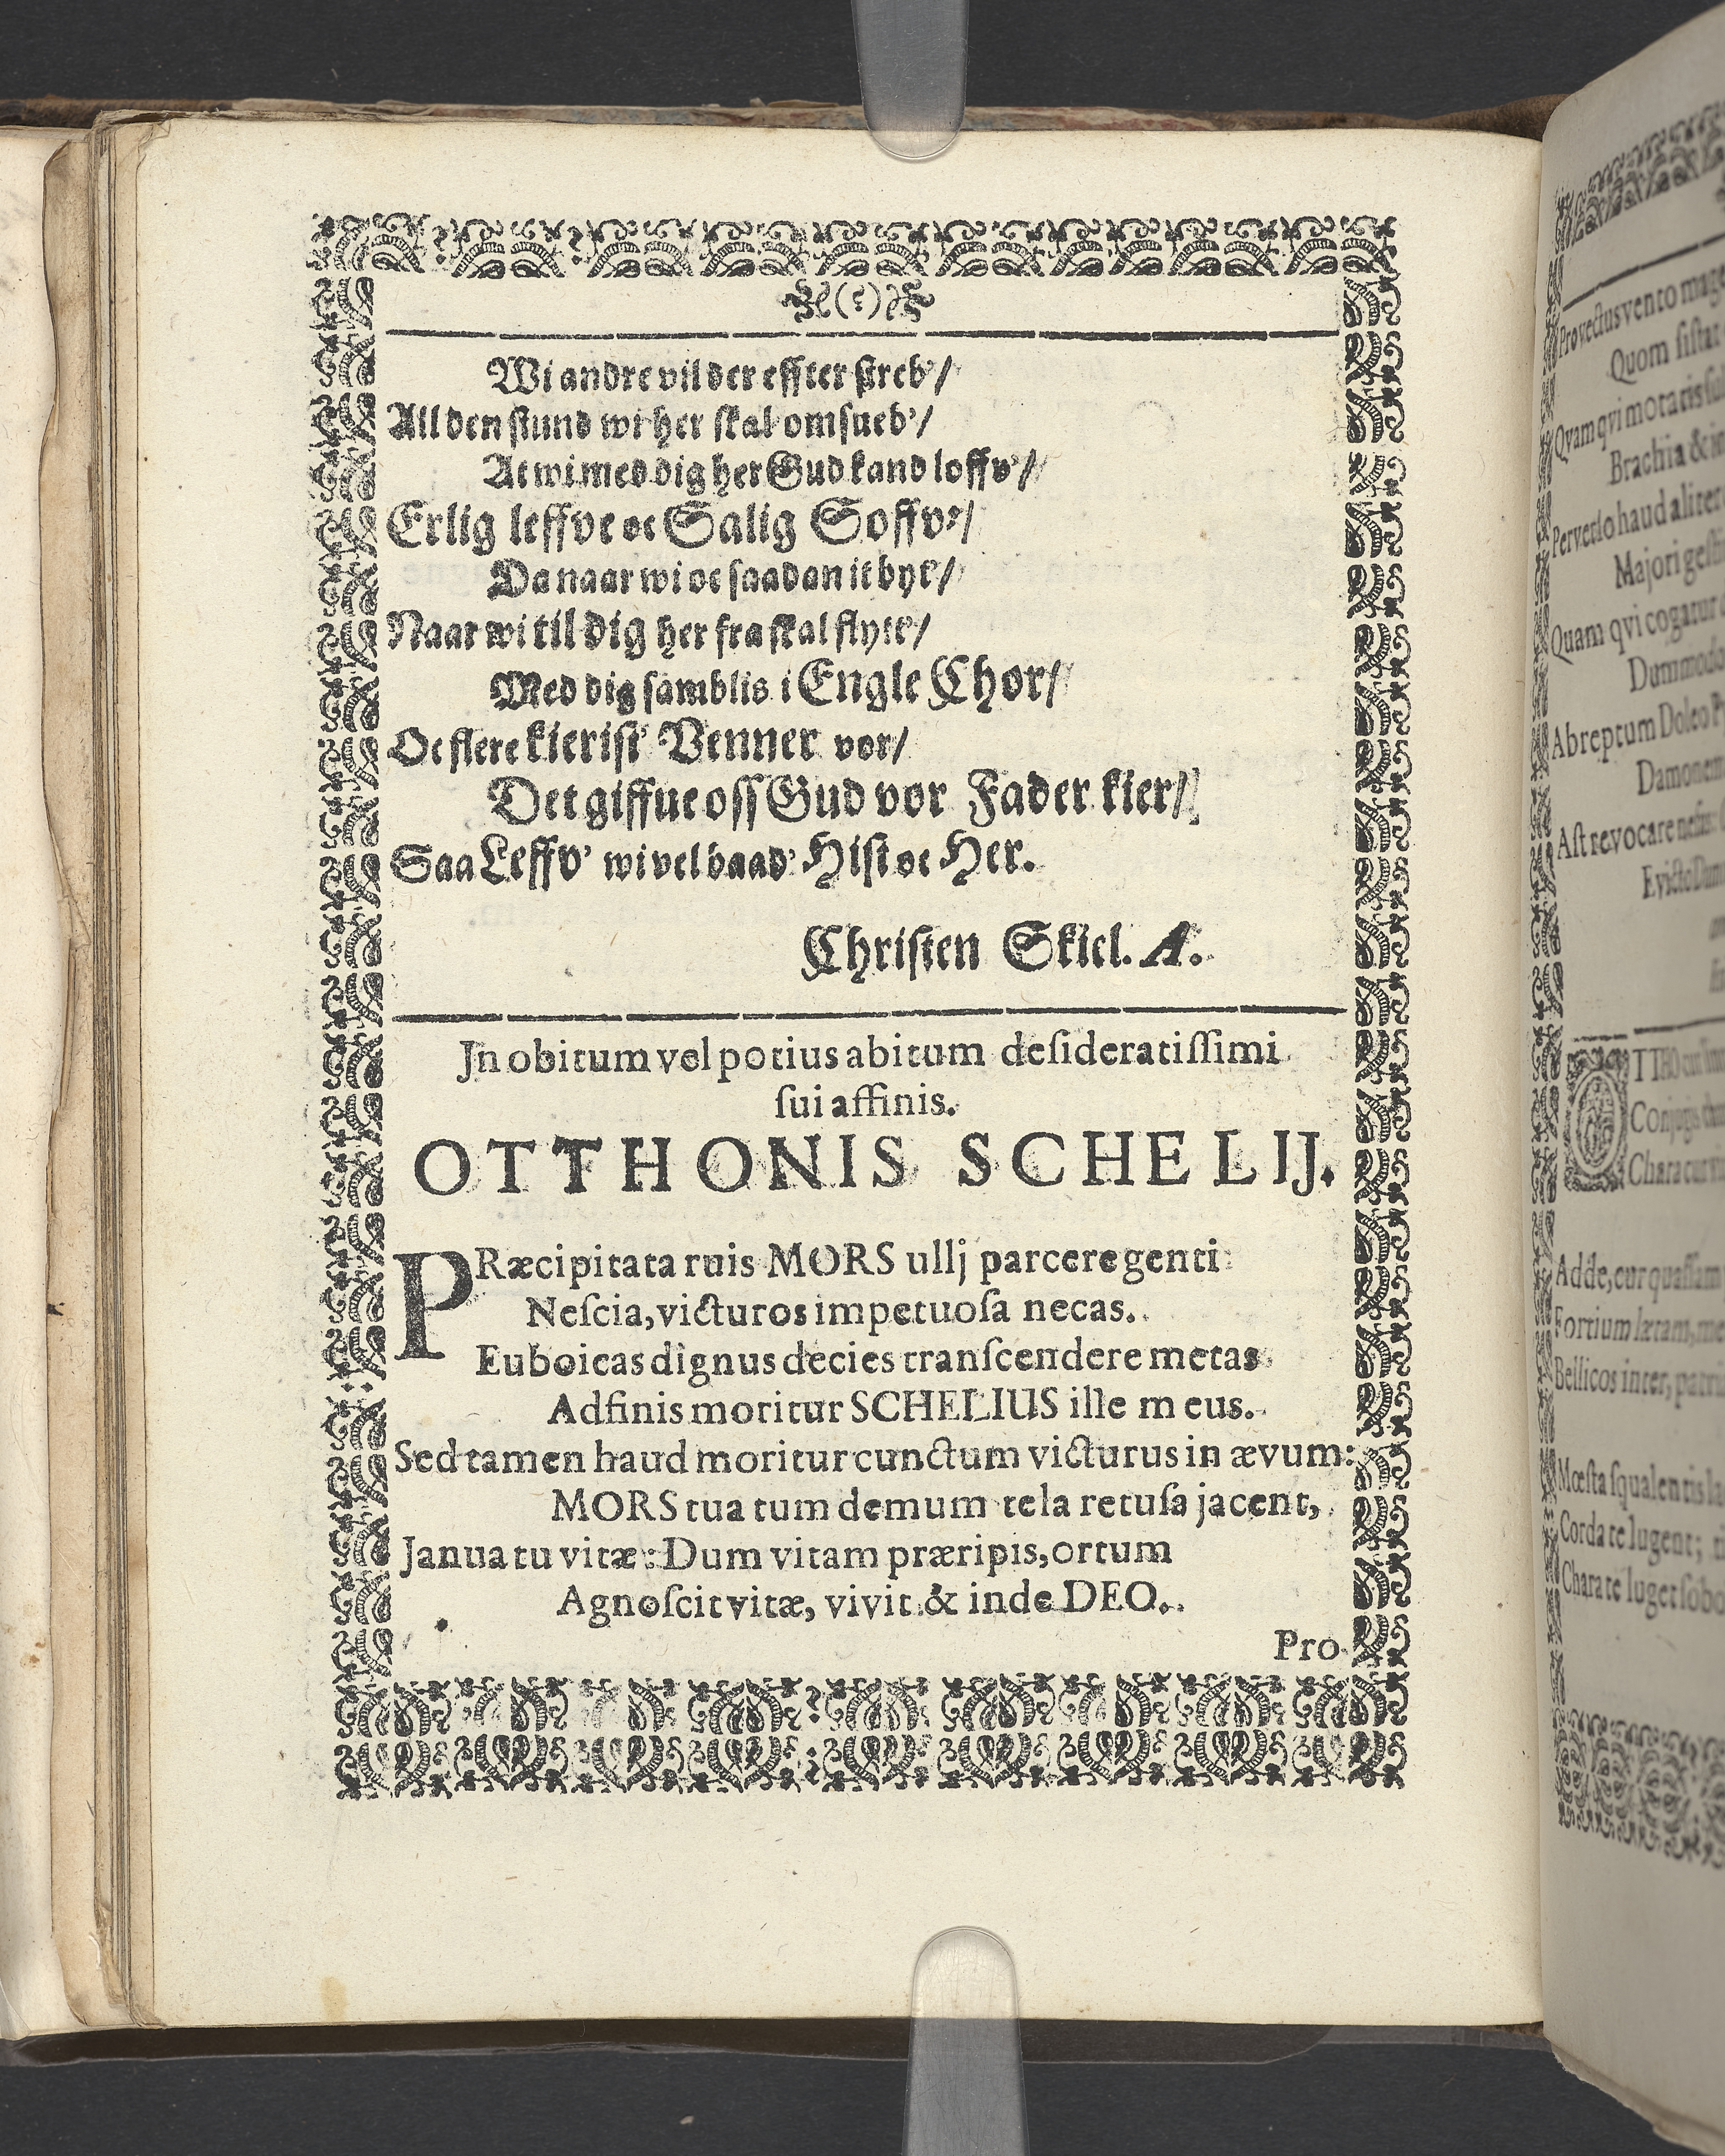 Wi andre vil der effter streb'/
All den stund wi her skal omsueb'/
At wi med dig her Gud kand loffv'/
Erlig leffve oc Salig Soffv'/
Da naar wi oc saadan it byt'/
Naar wi til dig her fra skal flytt'/
Med dig samblis i Engle Chor/
Oc flere kierist' Venner vor/
Det giffue oss Gud vor Fader kier/
Saa Leffv' wi vel baad' Hist oc Her.
Christen Skiel. A.
Jn obitum vel potius abitum desideratissimi
sui affinis.
OTTHONIS SCHELIJ.
PRæcipitata ruis MORS ullj parcere genti
Nescia, victuros impetuosa necas.
Euboicas dignus decies transcendere metas
Adfinis moritur SCHELIUS ille meus.
Sed tamen haud moritur cunctum victurus in ævum:
MORS tua tum demum tela retusa jacent,
Janua tu vitæ: Dum vitam præripis, ortum
Agnoscit vitæ, vivit & inde DEO.
Pro
Provectus vento mag
Quom sistat
Qvam qvi motaris
Brachia &
Perverso haud aliter
Majori
Quam qvi cogatur
Dummodo
Abreptum Doleo
Damonem
Ast revocare nefas:
TTHO cur
Conjugis
Chara cur
Adde, cur quassam
Fortium lætam,
Bellicos inter,
Mœsta squalentis
Corda te lugent;
Chara te luget